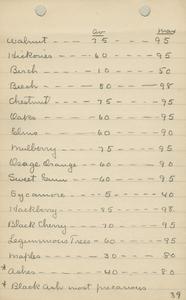 av max
Walnut - - - 75 - - - 95
Hickories - - 60 - - - 95
Birch - - - 10 - - - 50
Beech - - - 50 - - - 98
Chestnut - - 75 - - - 95
Oaks - - - 60 - - - 95
Elms - - - 60 - - - 90
Mulberry - - - 75 - - - 95
Osage Orange - - 60 - - - 90
Sweet Gum - - 60 - - - 95
Sycamore - - - 5 - - - 40
Hackberry - - - 95 - - - 98
Black Cherry - - 70 - - - 95
Leguminous Trees - 60 - - - 95
Maples - - - 30 - - - 80
* Ashes - - - 40 - - - 80
* Black Ash most precarious
39